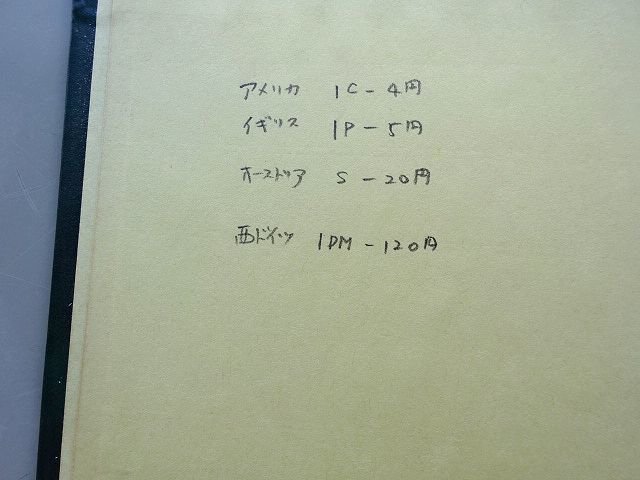 アメリカ 1C - 4円
イギリス 1P - 5円
オーストリア S - 20円
西ドイツ 1DM - 120円